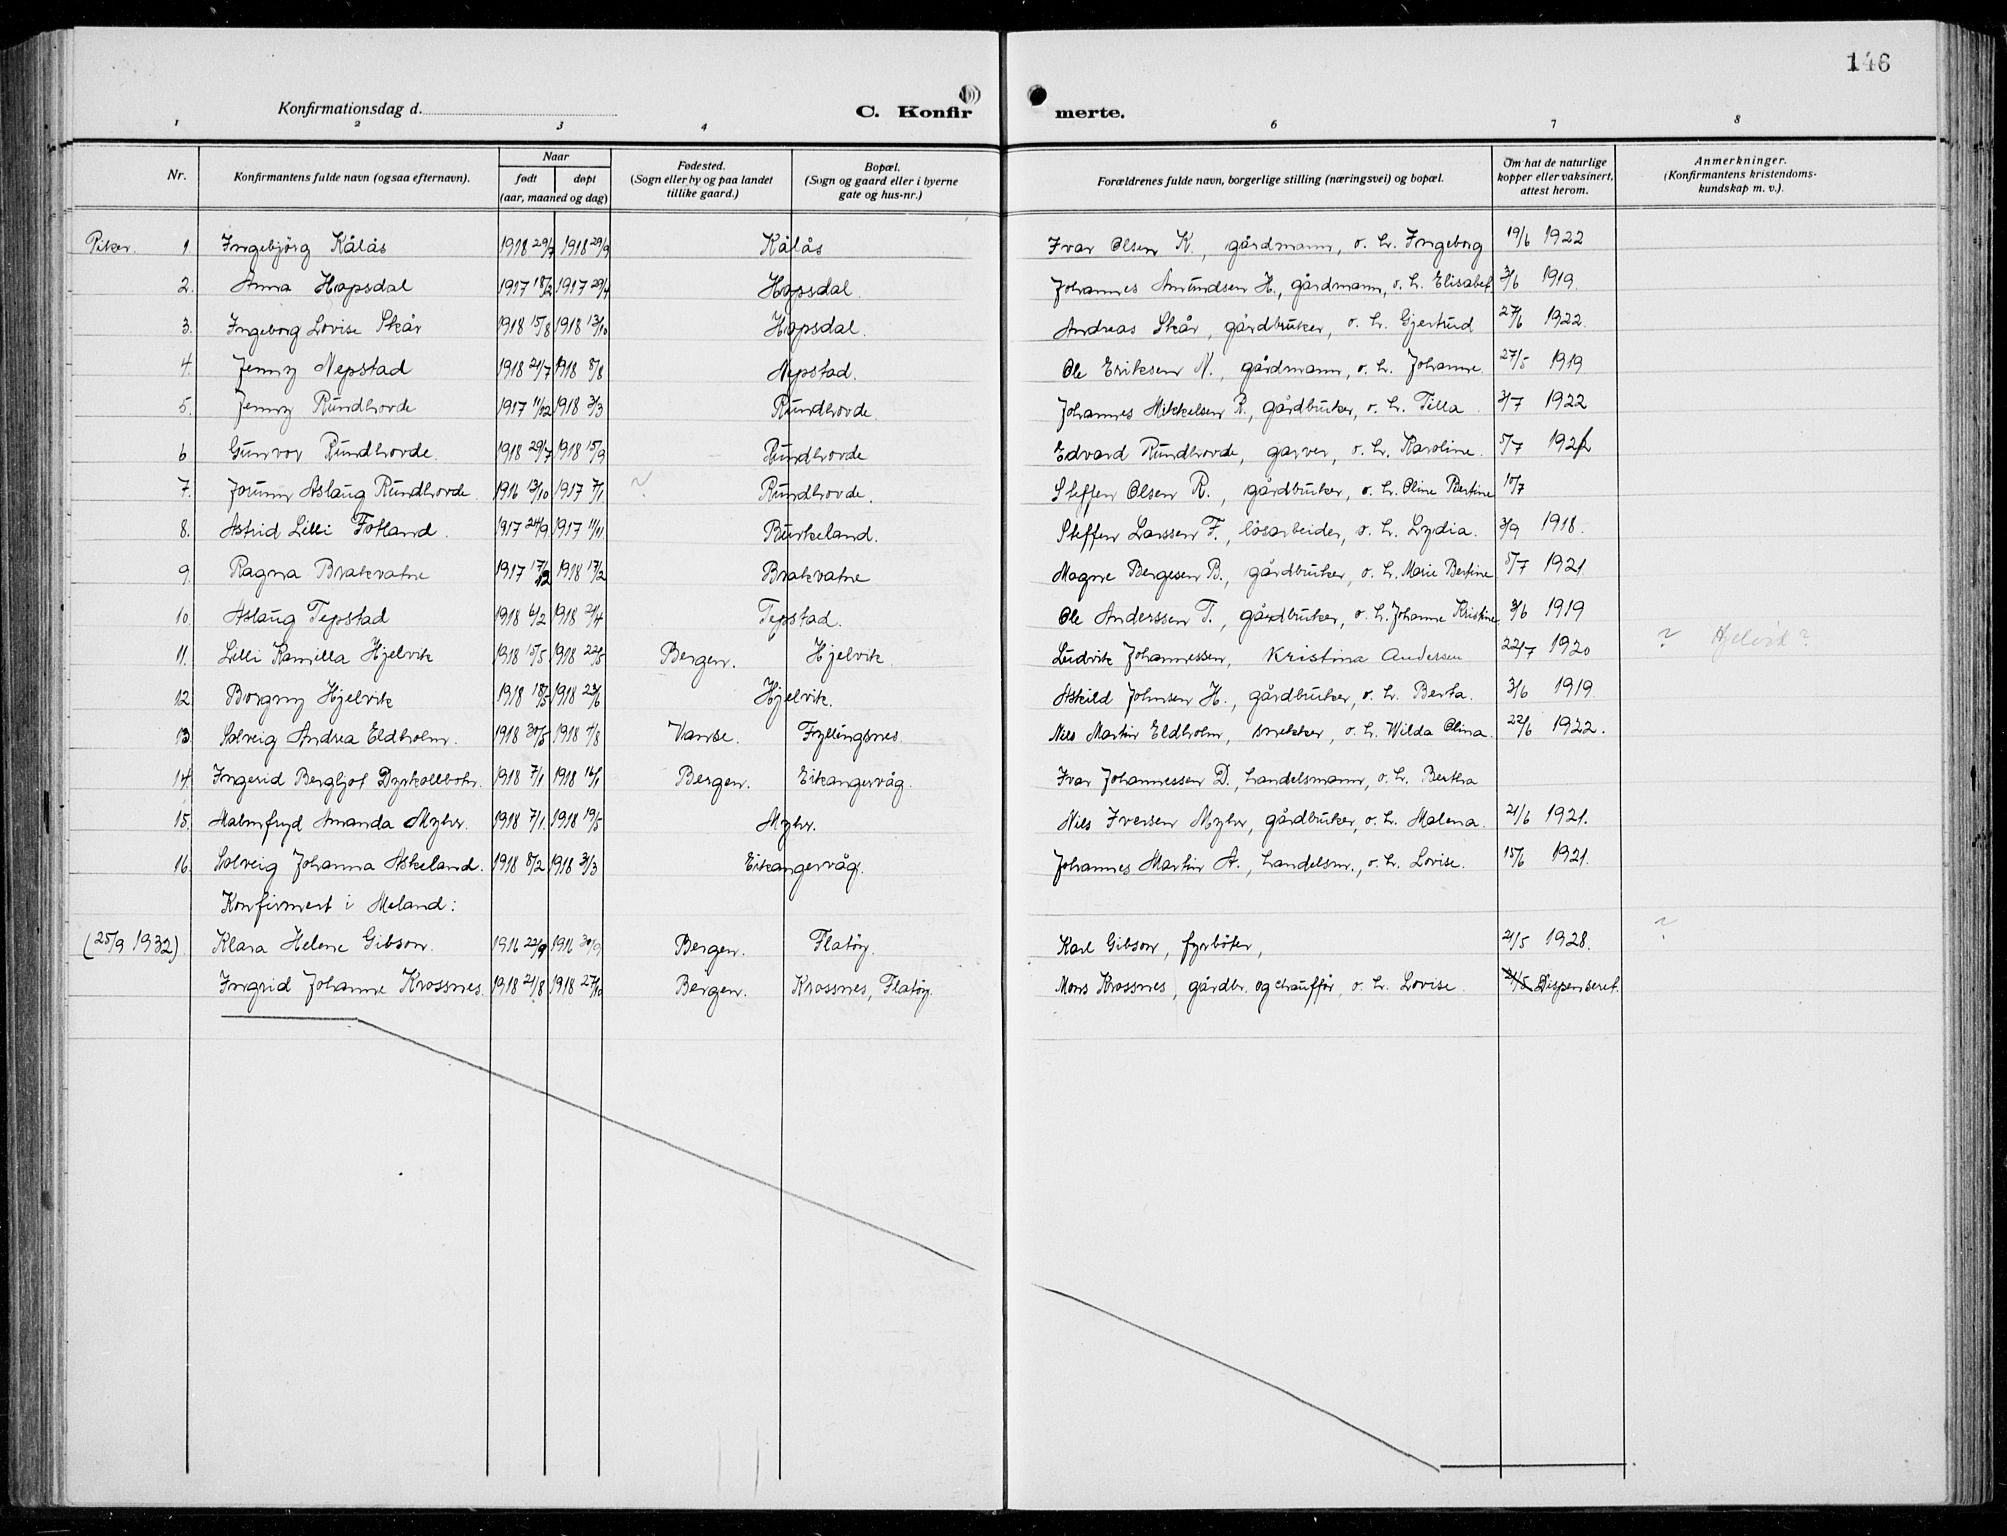 146
Konfirmationsdag d.
C. Konfir merte.
1 2 3 4 6 7 8
Nr. Konfirmantens fulde navn (ogsaa efternavn). Naar født døpt (aar, maaned og dag) Fødested. (Sogn eller by og paa landet tillike gaard.) Bopæl. (Sogn og gaard eller i byerne gate og hus-nr.) Forældrenes fulde navn, borgerlige stilling (næringsvei) og bopæl. Om hat de naturlige kopper eller vaksinert, attest herom. Anmerkninger. (Konfirmantens kristendoms-kundskap m. v.).
Piker. 1 Ingebjörg Kålås 1918 29/7 1918 29/9 Kålås Ivar Olsen K., gårdmann, o. h. Ingeborg 19/6 1922
2. Anna Hopsdal 1917 18/2 1917 29/4 Hopsdal. Johannes Amundsen H., gårdmann, o. h. Elisabet 3/6 1919
3. Ingeborg Lovise Skår 1918 15/8 1918 13/10 Hopsdal. Andreas Skår, gårdbruker, o. h. Gjertrud 27/6 1922.
4. Jenny Nepstad 1918 21/7 1918 8/8 Nepstad. Ole Eriksen N., gårdmann, o. h. Johanne 27/5 1919
5. Jenny Rundhovde 1917 11/12 1918 3/3 Rundhovde Johannes Mikkelsen R., gårdbruker, o. h. Tilla. 3/7 1922
6 Gunvor Rundhovde. 1918 29/7 1918 15/9 Rundhovde Edvard Rundhovde, garver, o. h. Karoline. 5/7
7. Jorunn Aslaug Rundhovde. 1916 13/10 1917 7/1 ? Rundhovde. Steffen Olsen R., gårdbruker, o. h. Oline Bertine 10/7
8. Astrid Lilli Fotland. 1917 24/9 1917 11/11 Burkeland. Steffen Larssen F., lösarbeider, o. h. Lydia. 3/9 1918.
9. Ragna Brakvatne 1917 17/12 1918 17/2 Brakvatne Magne Bergesen B., gårdbruker, o. h. Marie Bertine 5/7 1921
10. Aslaug Tepstad 1918 6/2 1918 21/4 Tepstad. Ole Anderssen T., gårdbruker, o. h. Johanne Kristine 3/6 1919
11. Lilli Kamilla Hjelvik 1918 15/5 1918 22/5 Bergen. Hjelvik. Ludvik Johannessen, Kristina Andersen 22/7 1920 ? Hjelvik?
12 Borgny Hjelvik 1918 18/5 1918 23/6 Hjelvik. Askild Johnsen H., gårdbruker, o. h. Berta. 3/6 1919.
13 Solveig Andrea Eldholm. 1918 30/5 1918 4/8 Vanse. Fyllingsnes. Nils Martin Eldholm, snekker, o. h. Wilda Olina. 22/6 1922.
14. Ingerid Bergljot Dyrkollbotn. 1918 7/1 1918 16/1 Bergen. Eikangervåg. Ivar Johannessen D., handelsmann, o. h. Bertha
15. Malmfryd Amanda Myhr. 1918 7/1 1918 19/5 Myhr. Nils Iversen Myhr, gårdbruker, o. h. Malena. 21/6 1921.
16. Solveig Johanna Askeland. 1918 8/2 1918 31/3 Eikangervåg. Johannes Martin A., handelsm., o. h. Lovise. 15/6 1921.
Konfirmert i Meland:
(25/9 1932) Klara Helene Gibson. 1916 22/9 1916 30/9 Bergen. Flatöy. Karl Gibson, fyrböter, 21/5 1928. ?
Ingrid Johanne Krossnes. 1918 21/8 1918 27/10 Bergen. Krossnes, Flatöy. Mons Krossnes, gårdbr. og chaufför, o. h. Lovise. Dispenseret.